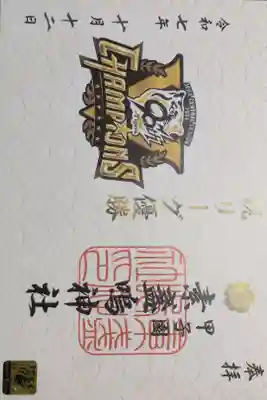 奉拝
祝リーグ優勝
CHAMPIONS
甲子園
素盞嗚神社
令和七年十月十二日